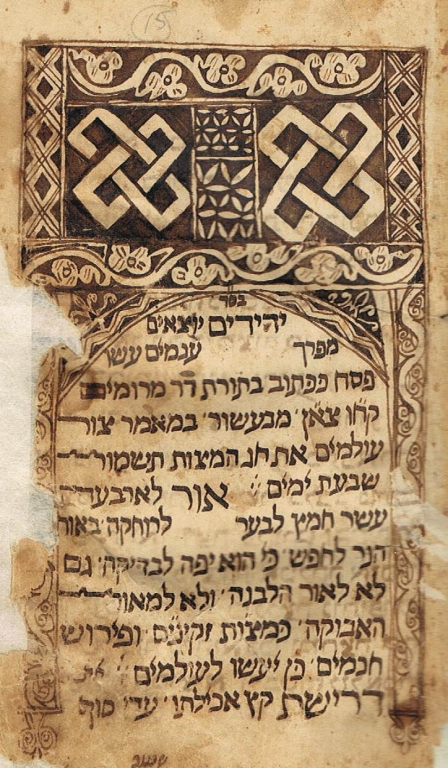 15
יחידים יוצאים
מפרך ענמים עשו
פסח ככתוב בתורת דר מרומים
קחו צאן מבעשור במאמר צור
עולמים את חג המצות תשמור
שבעת ימים אור לארבעה
עשר חמץ לבער לרוחקה באור
הנר לחפש כי הוא יפה לבדיקה גם
לא לאור הלבנה ולא למאור
האבוקה כמצות זקנים ופירוש
חכמים כן יעשו לעולמים את
דרישת קץ אכילתו עדי סוף